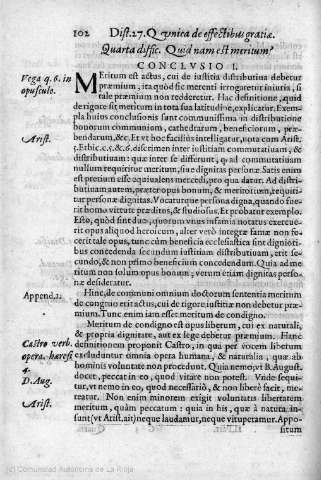 102 Dist. 27. Q. unica de effectibus gratiæ.
Quarta diffic. Quid nam est meritum?
CONCLVSIO I.
Vega q. 6. in
opusculo.
MEritum est actus, cui de iustitia distributiua debetur
præmium, ita quod sic merenti irrogaretur iniuria, si
tale præmium non redderetur. Hac definitione, quid
de rigore sit meritum in tota sua latitudine, explicatur. Exem-
pla huius conclusionis sunt communissima in distributione
bonorum communium, cathedrarum, beneficiorum, præ-
bendarum, &c. Et vt hoc facilius intelligatur, nota cum Arist.
Arist.
5. Ethic. c. 5. & 6. discrimen inter iustitiam commutatiuam, &
distributiuam: quæ inter se differunt, q̃ ad commutatiuam
nullum requiritur meritum, siue dignitas personæ. Satis enim
est pretium esse æquiualens merced, pro qua datur. Ad distri-
butiuam autem, præter opus bonum, & meritorium, requiri-
tur personæ dignitas. Vocatur que persona digna, quando fue-
rit homo virtute præditus, & studiosus. Et probatur exemplo.
Esto, quòd sint duo, quorum vnus infamia notatus exercue-
rit opus aliquod heroicum, alter verò integræ famæ non fe-
cerit tale opus, tunc cùm beneficia ecclesiastica sint dignioti-
bus concedenda secundum iustitiam distributiuam, erit se-
cundo, & non primo beneficium concedendum. Quia ad me-
ritum non solum opus bonum, verum etiam dignitas perso-
næ desideratur.
Append. 2.
Hinc, de communi omnium doctorum sententia meritum
de congruo erit actus, cui de rigore iustitiæ non debetur præ-
mium. Tunc enim iam esset meritum de condigno.
Meritum de condigno est opus liberum, cui ex naturali,
& propria dignitate, aut ex lege debetur præmium. Hanc
Castro verb.
opera. hæres
4.
definitionem proponit Castro, in qua per vocem liberum
excluduntur omnia opera humana, & naturalia, quæ ab
hominis voluntate non procedunt. Quia nemo, vt B. August.
D. Aug.
ait, peccat in eo, quod vitare non potest. Vnde sequi-
tur, vt nemo in eo, quod necessariò, & non liberè facit, me-
reatur. Non enim minorem exigit voluntatis libertatem
Arist.
meritum, quàm peccatum: quia in his, quæ à natura in-
sunt (vt Arist. ait) neque laudamur, neque vituperamur. Appo-
situm
(c) Comunidad Autónoma de La Rioja